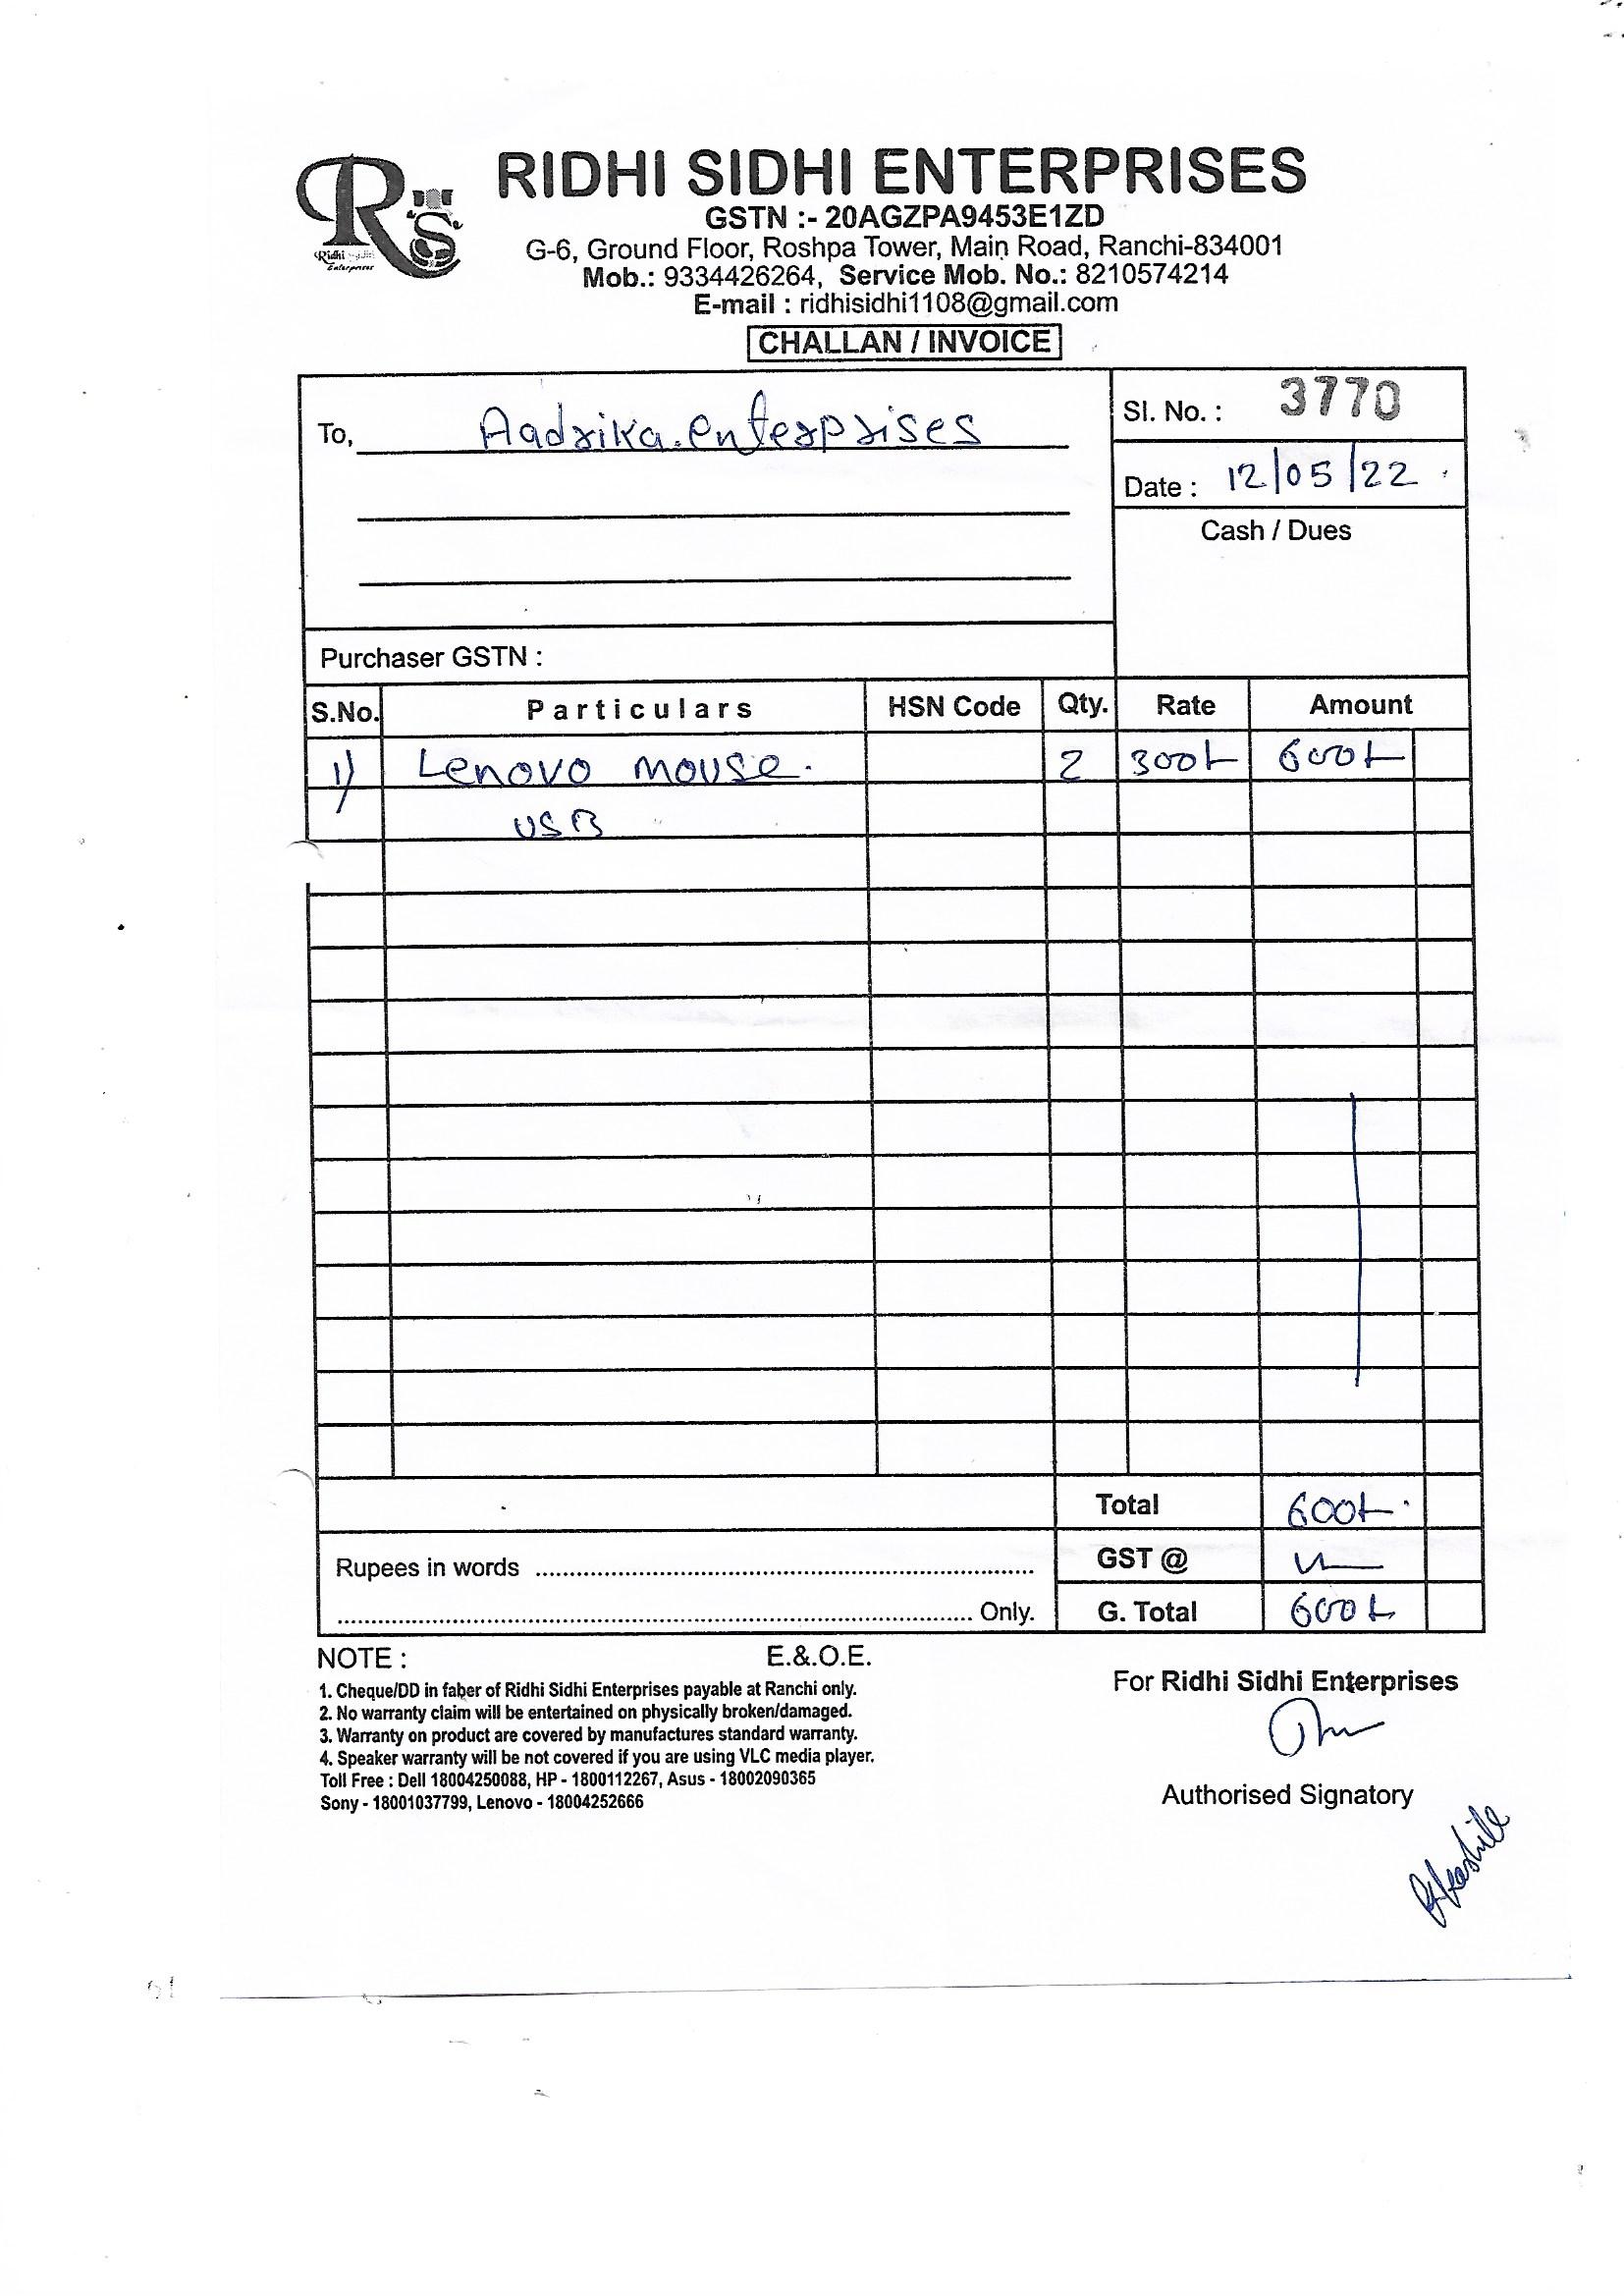 RIDHI SIDHI ENTERPRISES
GSTN :- 20AGZPA9453E1ZD
G-6, Ground Floor, Roshpa Tower, Main Road, Ranchi-834001
Mob.: 9334426264, Service Mob. No.: 8210574214
E-mail : ridhisidhi1108@gmail.com
Rs
Ridhi Sidhi
Enterprises
CHALLAN / INVOICE
To, Aadrika enterprises
Sl. No. : 3770
Date : 12/05/22
Cash / Dues
Purchaser GSTN :
S.No. Particulars HSN Code Qty. Rate Amount
1) Lenovo mouse. 2 300/- 600/-
USB
Total 600/-
Rupees in words GST @
Only. G. Total 600/-
NOTE : E.&.O.E.
1. Cheque/DD in faber of Ridhi Sidhi Enterprises payable at Ranchi only.
2. No warranty claim will be entertained on physically broken/damaged.
3. Warranty on product are covered by manufactures standard warranty.
4. Speaker warranty will be not covered if you are using VLC media player.
Toll Free : Dell 18004250088, HP - 1800112267, Asus - 18002090365
Sony - 18001037799, Lenovo - 18004252666
For Ridhi Sidhi Enterprises
Authorised Signatory